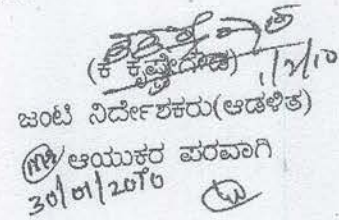 (ಕೆ ಕೃಷ್ಣೇಗೌಡ) 1/2/10
ಜಂಟಿ ನಿರ್ದೇಶಕರು(ಆಡಳಿತ)
ಆಯುಕರ ಪರವಾಗಿ
30/01/2010